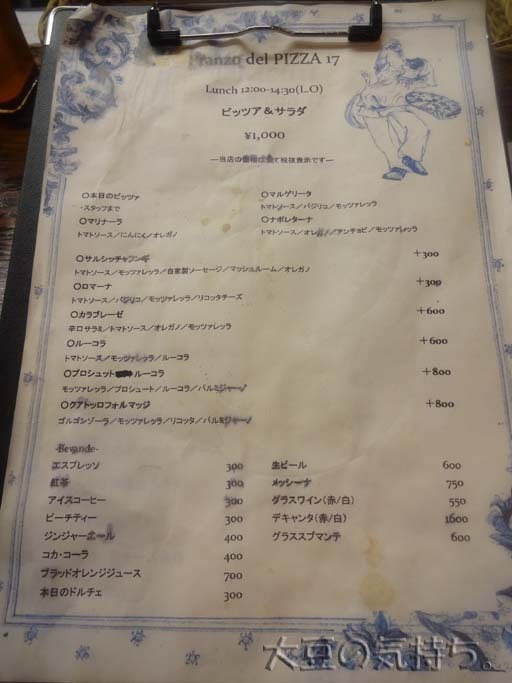 del PIZZA 17
Lunch 12:00-14:30(L.O)
ピッツア＆サラダ
¥1,000
―当店の価格は全て税抜表示です―
〇本日のピッツァ
・スタッフまで
〇マリナーラ
トマトソース／にんにく／オレガノ
〇マルゲリータ
トマトソース／バジリコ／モッツァレッラ
〇ナポレターナ
トマトソース／オレガノ／アンチョビ／モッツァレッラ
〇サルシッチャフンギ +300
トマトソース／モッツァレッラ／自家製ソーセージ／マッシュルーム／オレガノ
〇ロマーナ +300
トマトソース／バジリコ／モッツァレッラ／リコッタチーズ
〇カラブレーゼ +600
辛口サラミ／トマトソース／オレガノ／モッツァレッラ
〇ルーコラ +600
トマトソース／モッツァレッラ／ルーコラ
〇プロシュット ルーコラ +800
モッツァレッラ／プロシュート／ルーコラ／パルミジャーノ
〇クアトッロフォルマッジ +800
ゴルゴンゾーラ／モッツァレッラ／リコッタ／パルミジャーノ
-Bevande-
エスプレッソ 300
紅茶 300
アイスコーヒー 300
ピーチティー 300
ジンジャーエール 400
コカ・コーラ 400
ブラッドオレンジジュース 700
本日のドルチェ 300
生ビール 600
メッシーナ 750
グラスワイン（赤/白） 550
デキャンタ（赤/白） 1600
グラススプマンテ 600
大豆の気持ち。